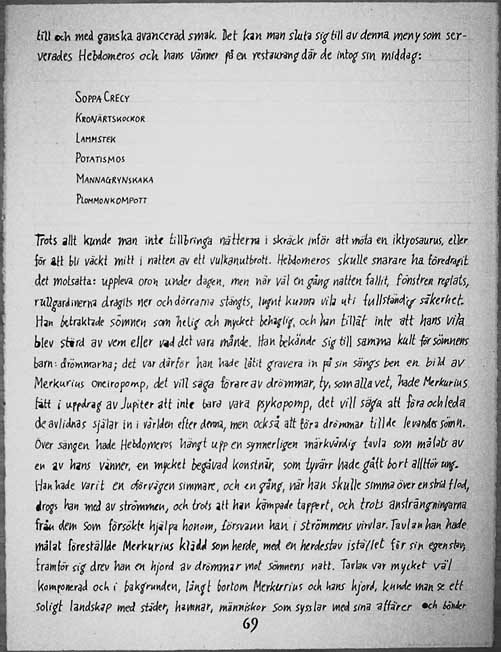 till och med ganska avancerad smak. Det kan man sluta sig till av denna meny som ser-
verades Hebdomeros och hans vänner på en restaurang där de intog sin middag:
SOPPA CRECY
KRONÄRTSKOCKOR
LAMMSTEK
POTATISMOS
MANNAGRYNSKAKA
PLOMMONKOMPOTT
Trots allt kunde man inte tillbringa nätterna i skräck inför att möta en iktyosaurus, eller
för att bli väckt mitt i natten av ett vulkanutbrott. Hebdomeros skulle snarare ha föredragit
det motsatta: uppleva oron under dagen, men när väl en gång natten fallit, fönstren reglats,
rullgardinerna dragits ner och dörrarna stängts, lugnt kunna vila uti fullständig säkerhet.
Han betraktade sömnen som helig och mycket behaglig, och han tillät inte att hans vila
blev störd av vem eller vad det vara månde. Han bekände sig till samma kult för sömnens
barn: drömmarna; det var därför han hade låtit gravera in på sin sängs ben en bild av
Merkurius oneiropomp, det vill säga förare av drömmar, ty, som alla vet, hade Merkurius
fått i uppdrag av Jupiter att inte bara vara psykopomp, det vill säga att föra och leda
de avlidnas själar in i världen efter denna, men också att föra drömmar till de levandes sömn.
Över sängen hade Hebdomeros hängt upp en synnerligen märkvärdig tavla som målats av
en av hans vänner, en mycket begåvad konstnär, som tyvärr hade gått bort alltför ung.
Han hade varit en oförvägen simmare, och en gång, när han skulle simma över en strid flod,
drogs han med av strömmen, och trots att han kämpade tappert, och trots ansträngningarna
från dem som försökte hjälpa honom, försvann han i strömmens virvlar. Tavlan han hade
målat föreställde Merkurius klädd som herde, med en herdestav istället för sin egen stav,
framför sig drev han en hjord av drömmar mot sömnens natt. Tavlan var mycket väl
komponerad och i bakgrunden, långt bortom Merkurrius och hans hjord, kunde man se ett
soligt landskap med städer, hamnar, människor som sysslar med sina affärer och bönder
69